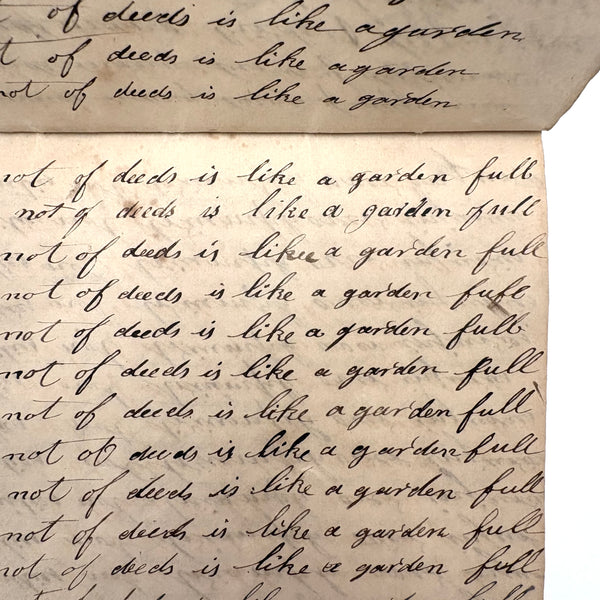 of deeds is like a garden
of deeds is like a garden
not of deeds is like a garden
not of deeds is like a garden full
not of deeds is like a garden full
not of deeds is like a garden full
not of deeds is like a garden full
not of deeds is like a garden full
not of deeds is like a garden full
not of deeds is like a garden full
not of deeds is like a garden full
not of deeds is like a garden full
not of deeds is like a garden full
not of deeds is like a garden full